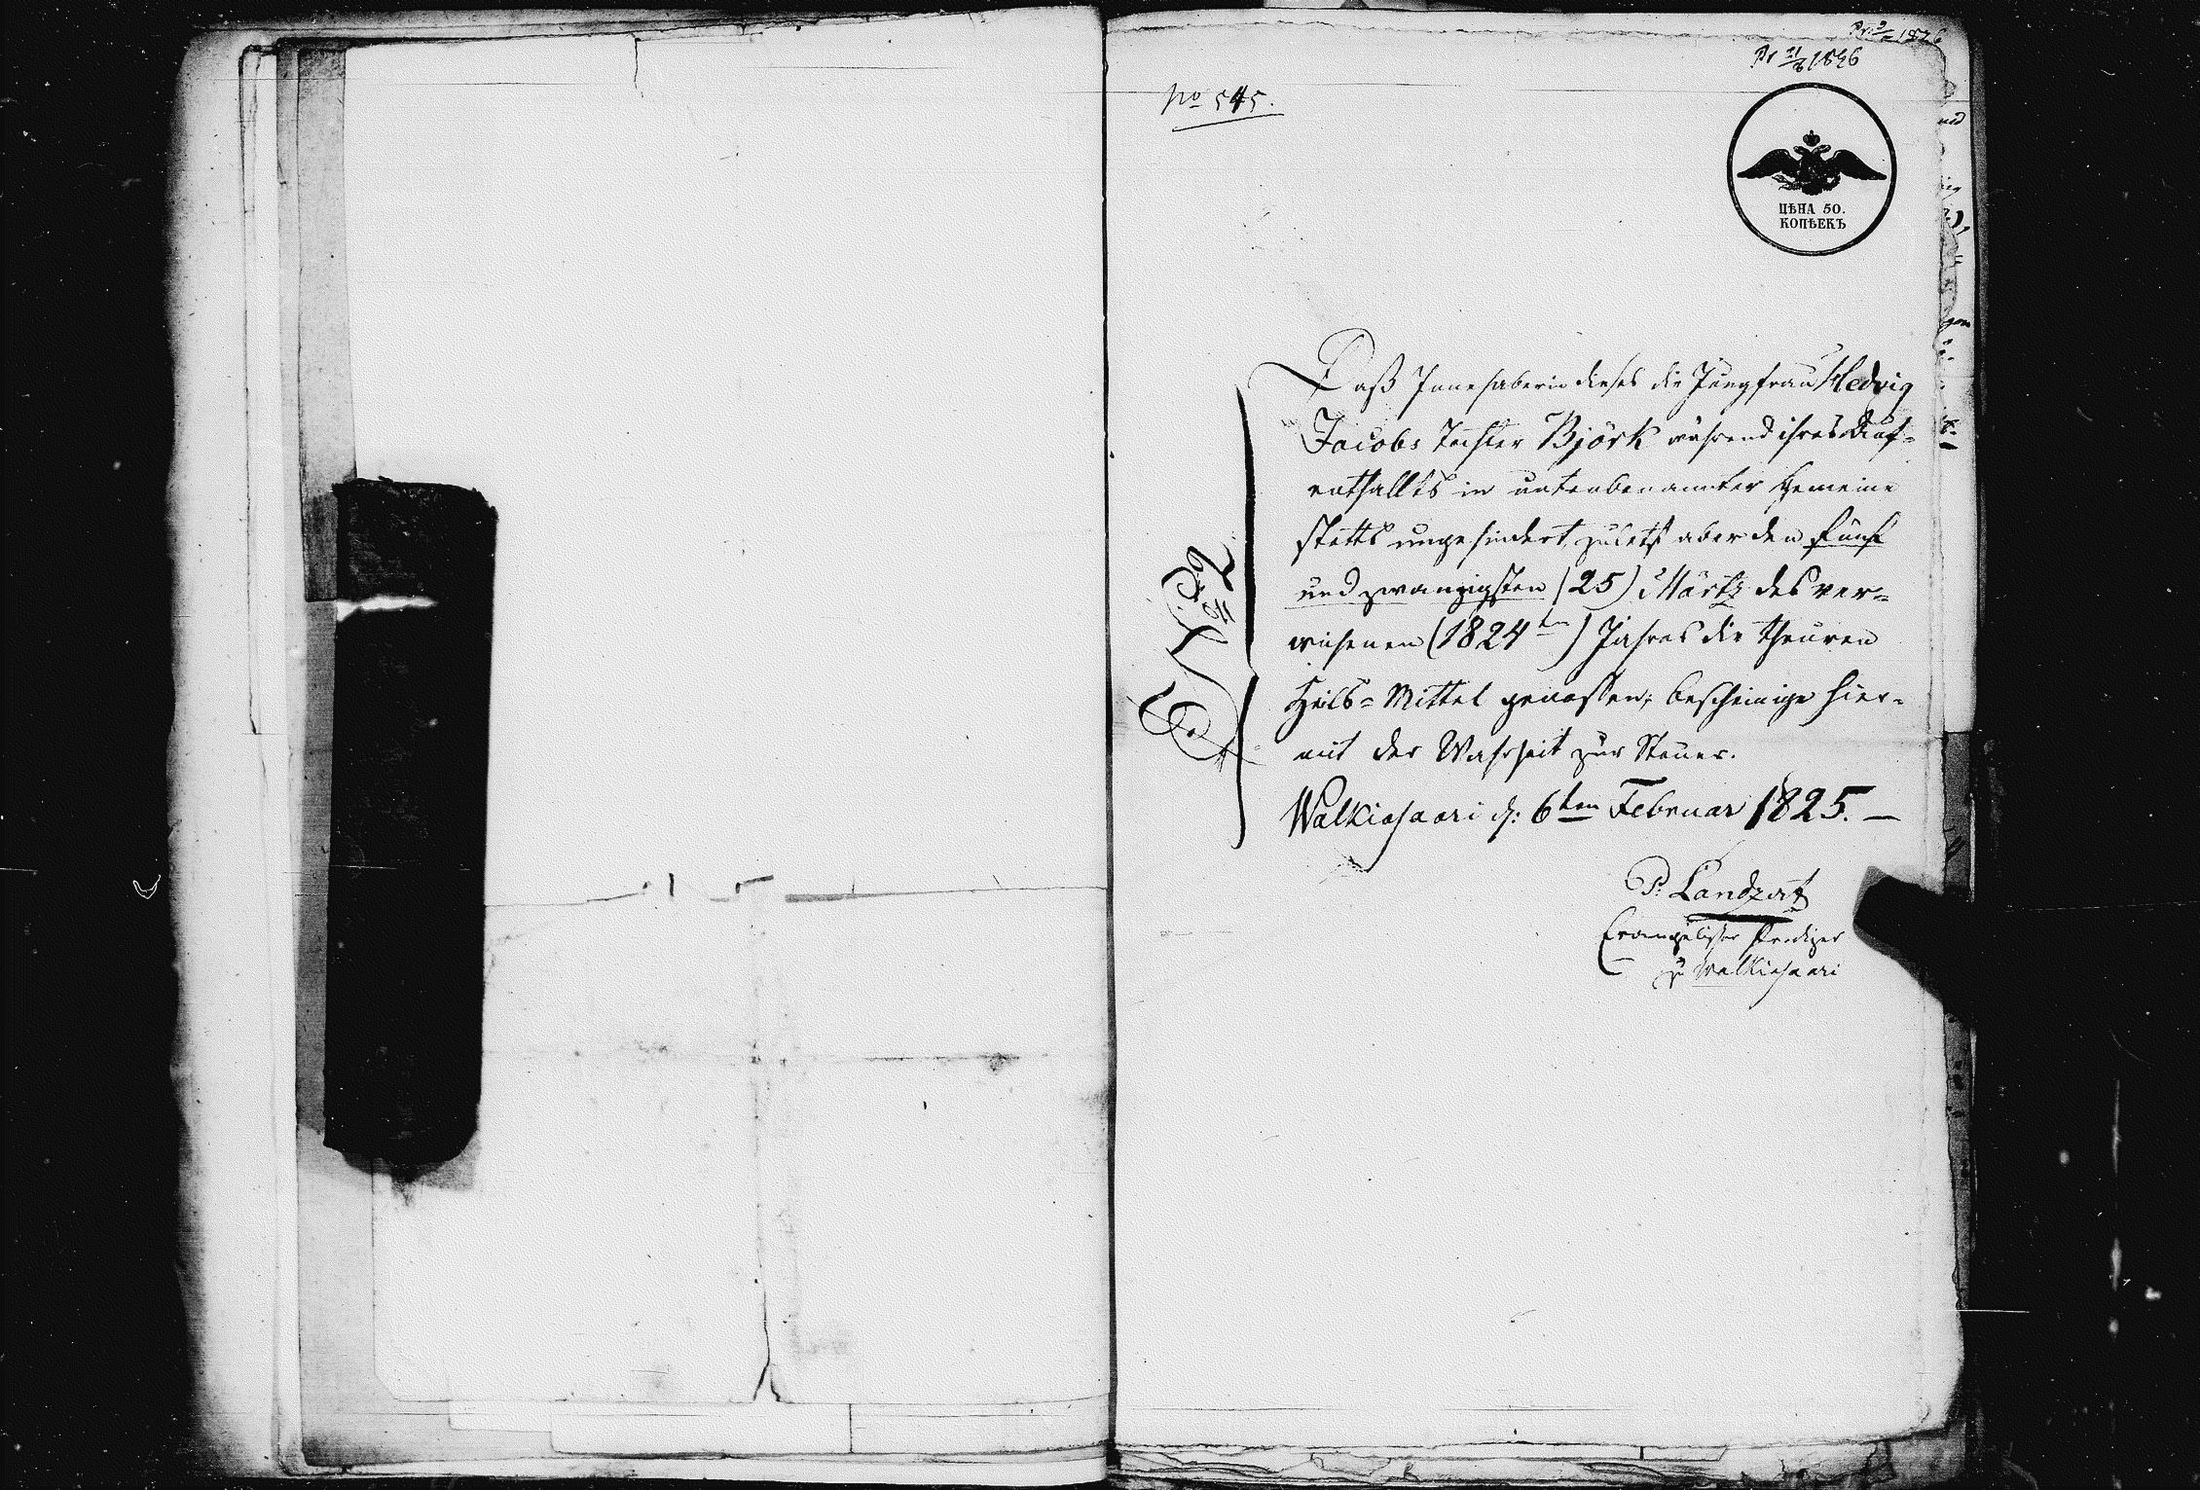 Pr 21/8 1826
No 545.
ЦѢНА 50.
КОПѢЕКЪ
Daß Innehaberin dieses die Jungfrau Hedvig
Jacobs Tochter Björk während ihres Auf-
enthallts in untenbenannter Gemeine
stetts ungehindert, zuletzt aber den fünf
und zwanzigsten (25) Märtz des ver-
wichenen (1824ten) Jahres die theuren
Heils-Mittel genossen, bescheinige hier-
mit der Wahrheit zur Steuer.
Walkiasaari d: 6ten Februar 1825. —
P: Landzert
Evangelischer Prediger
zu Walkiasaari